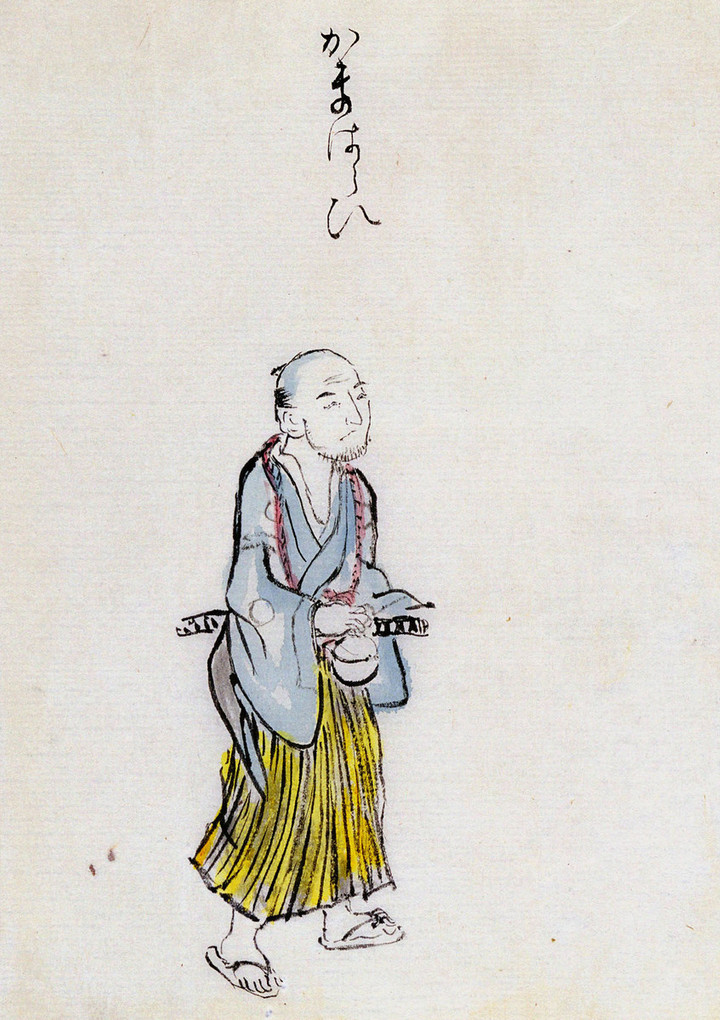 かまはらひ